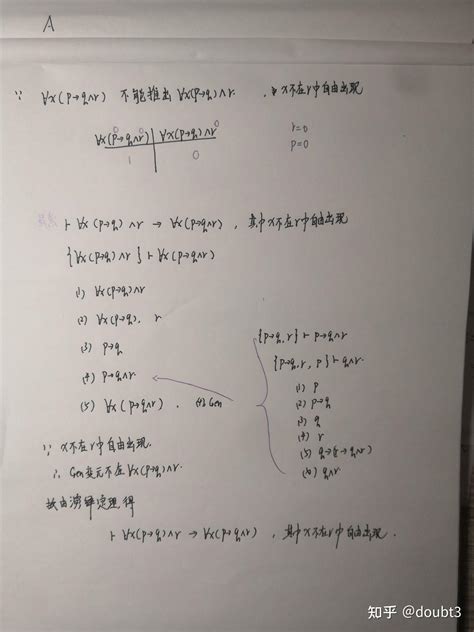 A
∵ ∀x(p→q∧r) 不能推出 ∀x(p→q)∧r. , x不在r中自由出现
∀x(p→q∧r) | ∀x(p→q)∧r
0 0 0
r=0
p=0
1 0
⊢ ∀x(p→q)∧r → ∀x(p→q∧r), 其中x不在r中自由出现
{∀x(p→q)∧r} ⊢ ∀x(p→q∧r)
(1) ∀x(p→q)∧r
(2) ∀x(p→q), r
(3) p→q
(4) p→q∧r
(5) ∀x(p→q∧r) . (4) Gen
{p→q, r} ⊢ p→q∧r
{p→q, r, p} ⊢ q∧r.
(1) p
(2) p→q
(3) q
(4) r
(5) q→(r→q∧r)
(6) q∧r.
∵ x不在r中自由出现.
∴ Gen变元不在∀x(p→q)∧r.
故由演绎定理得
⊢ ∀x(p→q)∧r → ∀x(p→q∧r) , 其中x不在r中自由出现.
知乎 @doubt3